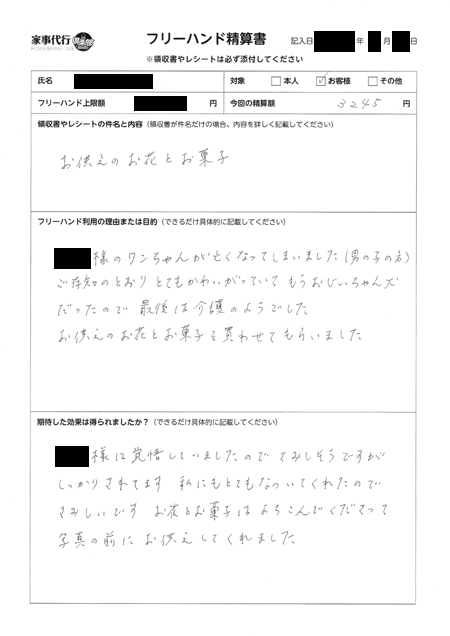 家事代行
フリーハンド精算書
記入日 年 月 日
※領収書やレシートは必ず添付してください
氏名
対象 □本人 ☑お客様 □その他
フリーハンド上限額 円
今回の精算額 3245 円
領収書やレシートの件名と内容（領収書が件名だけの場合、内容を詳しく記載してください）
お供えのお花とお菓子
フリーハンド利用の理由または目的（できるだけ具体的に記載してください）
様のワンちゃんが亡くなってしまいました（男の子の方）
ご存知のとおり とてもかわいがっていて もうおじいちゃん犬
だったので 最後は介護のようでした
お供えのお花とお菓子を買わせてもらいました
期待した効果は得られましたか？（できるだけ具体的に記載してください）
様は覚悟していましたので さみしそうですが
しっかりされてます 私にもとてもなついてくれたので
さみしいです お花とお菓子はよろこんでくださって
写真の前にお供えしてくれました